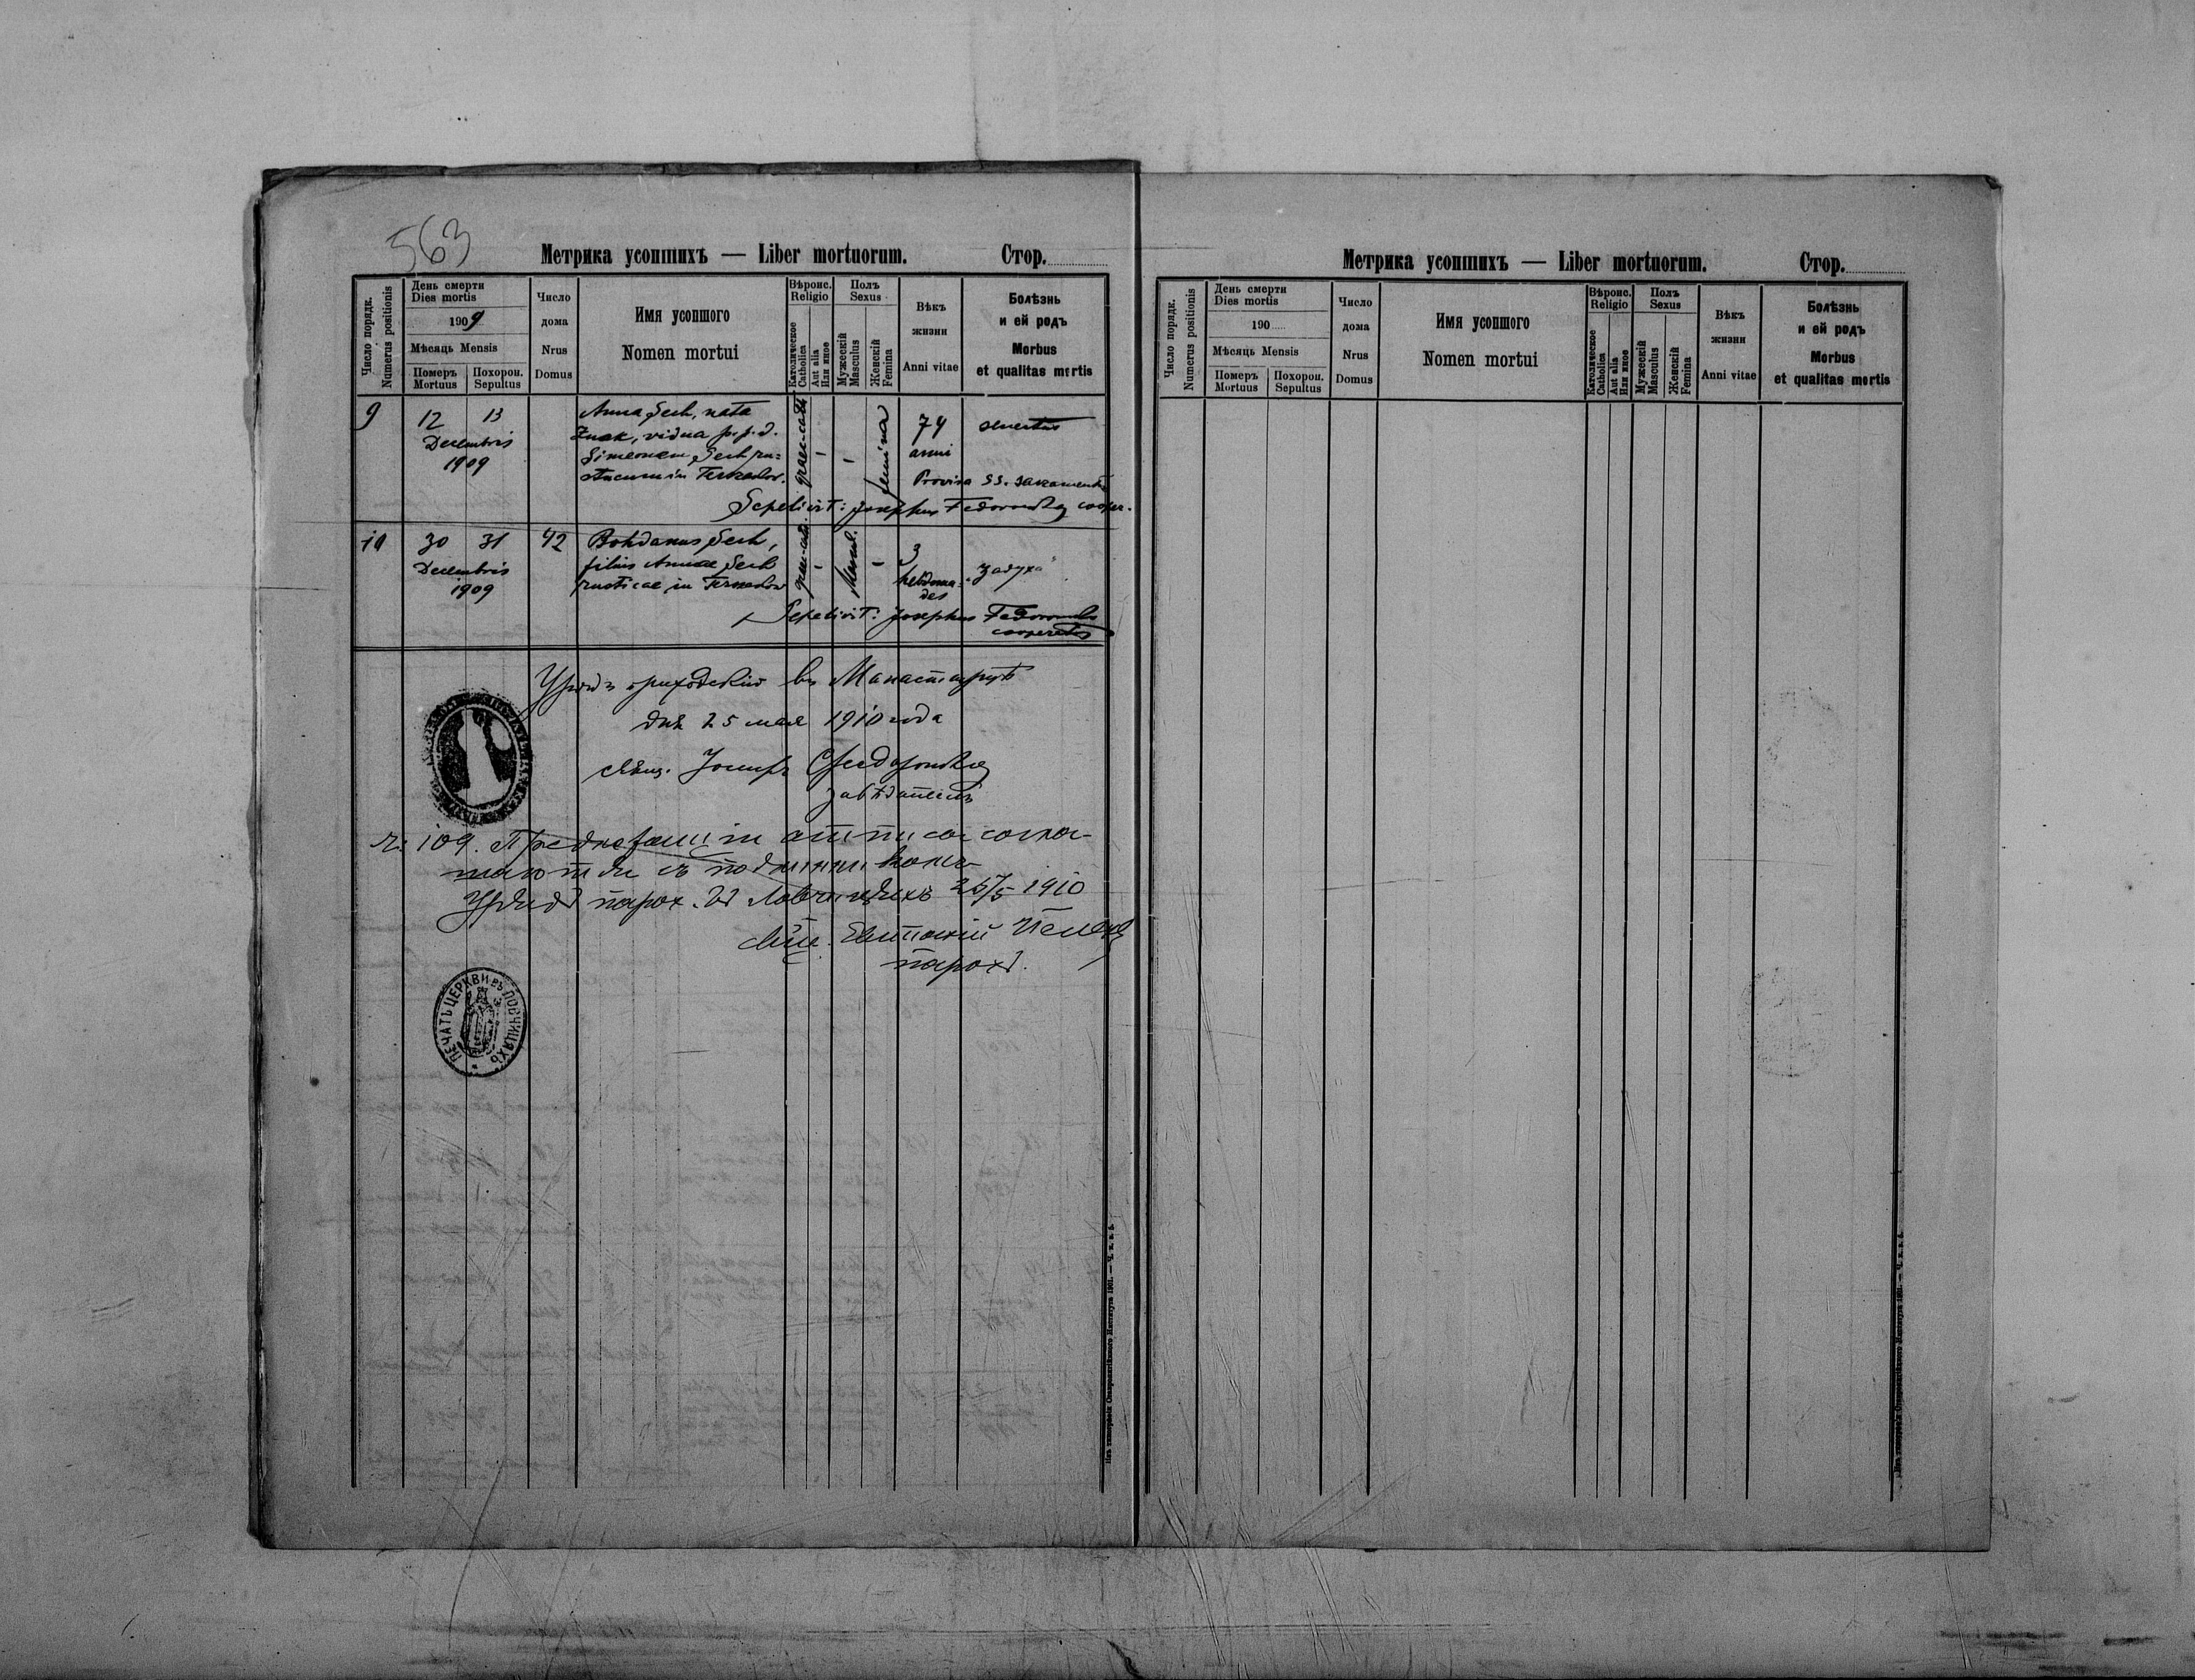 563
Метрика усопшихъ — Liber mortuorum. Стор.
Число порядк.
Numerus positionis
День смерти
Dies mortis
1909
Мѣсяць Mensis
Померъ
Mortuus
Похорон.
Sepultus
Число
дома
Nrus
Domus
Имя усопшого
Nomen mortui
Вѣроис.
Religio
Католическое
Catholica
Aut alia
Или иное
Полъ
Sexus
Мужескій
Masculus
Женскій
Femina
Вѣкъ
жизни
Anni vitae
Болѣзнь
и ей родъ
Morbus
et qualitas mortis
9 12 13
Decembris
1909
Anna Sech, nata
Znak, vidua p. p. d.
Simeonem Sech ru=
sticum in
graec-cath
-
-
femina
74
anni
Provisa SS. sacramentis
Sepelivit: Josephus cooper.
10 30 31 42
Decembris
1909
Bohdanus Sech,
filius Annae Sech
rusticae in
-
-
3
hebdoma=
des
"задуха"
Sepelivit: Josephus
cooperator
Урядъ приходскій въ
дня 25 мая 1910 года
свящ. Іосифъ
завѣдатель
ч: 109.
Урядъ парох. въ Ловчицяхъ 26/5 1910
парохъ.
ПЕЧАТЬ ЦЕРКВИ въ ЛОВЧИЦЯХЪ
Метрика усопшихъ — Liber mortuorum. Стор.
Число порядк.
Numerus positionis
День смерти
Dies mortis
190
Мѣсяць Mensis
Померъ
Mortuus
Похорон.
Sepultus
Число
дома
Nrus
Domus
Имя усопшого
Nomen mortui
Вѣроис.
Religio
Католическое
Catholica
Aut alia
Или иное
Полъ
Sexus
Мужескій
Masculus
Женскій
Femina
Вѣкъ
жизни
Anni vitae
Болѣзнь
и ей родъ
Morbus
et qualitas mortis